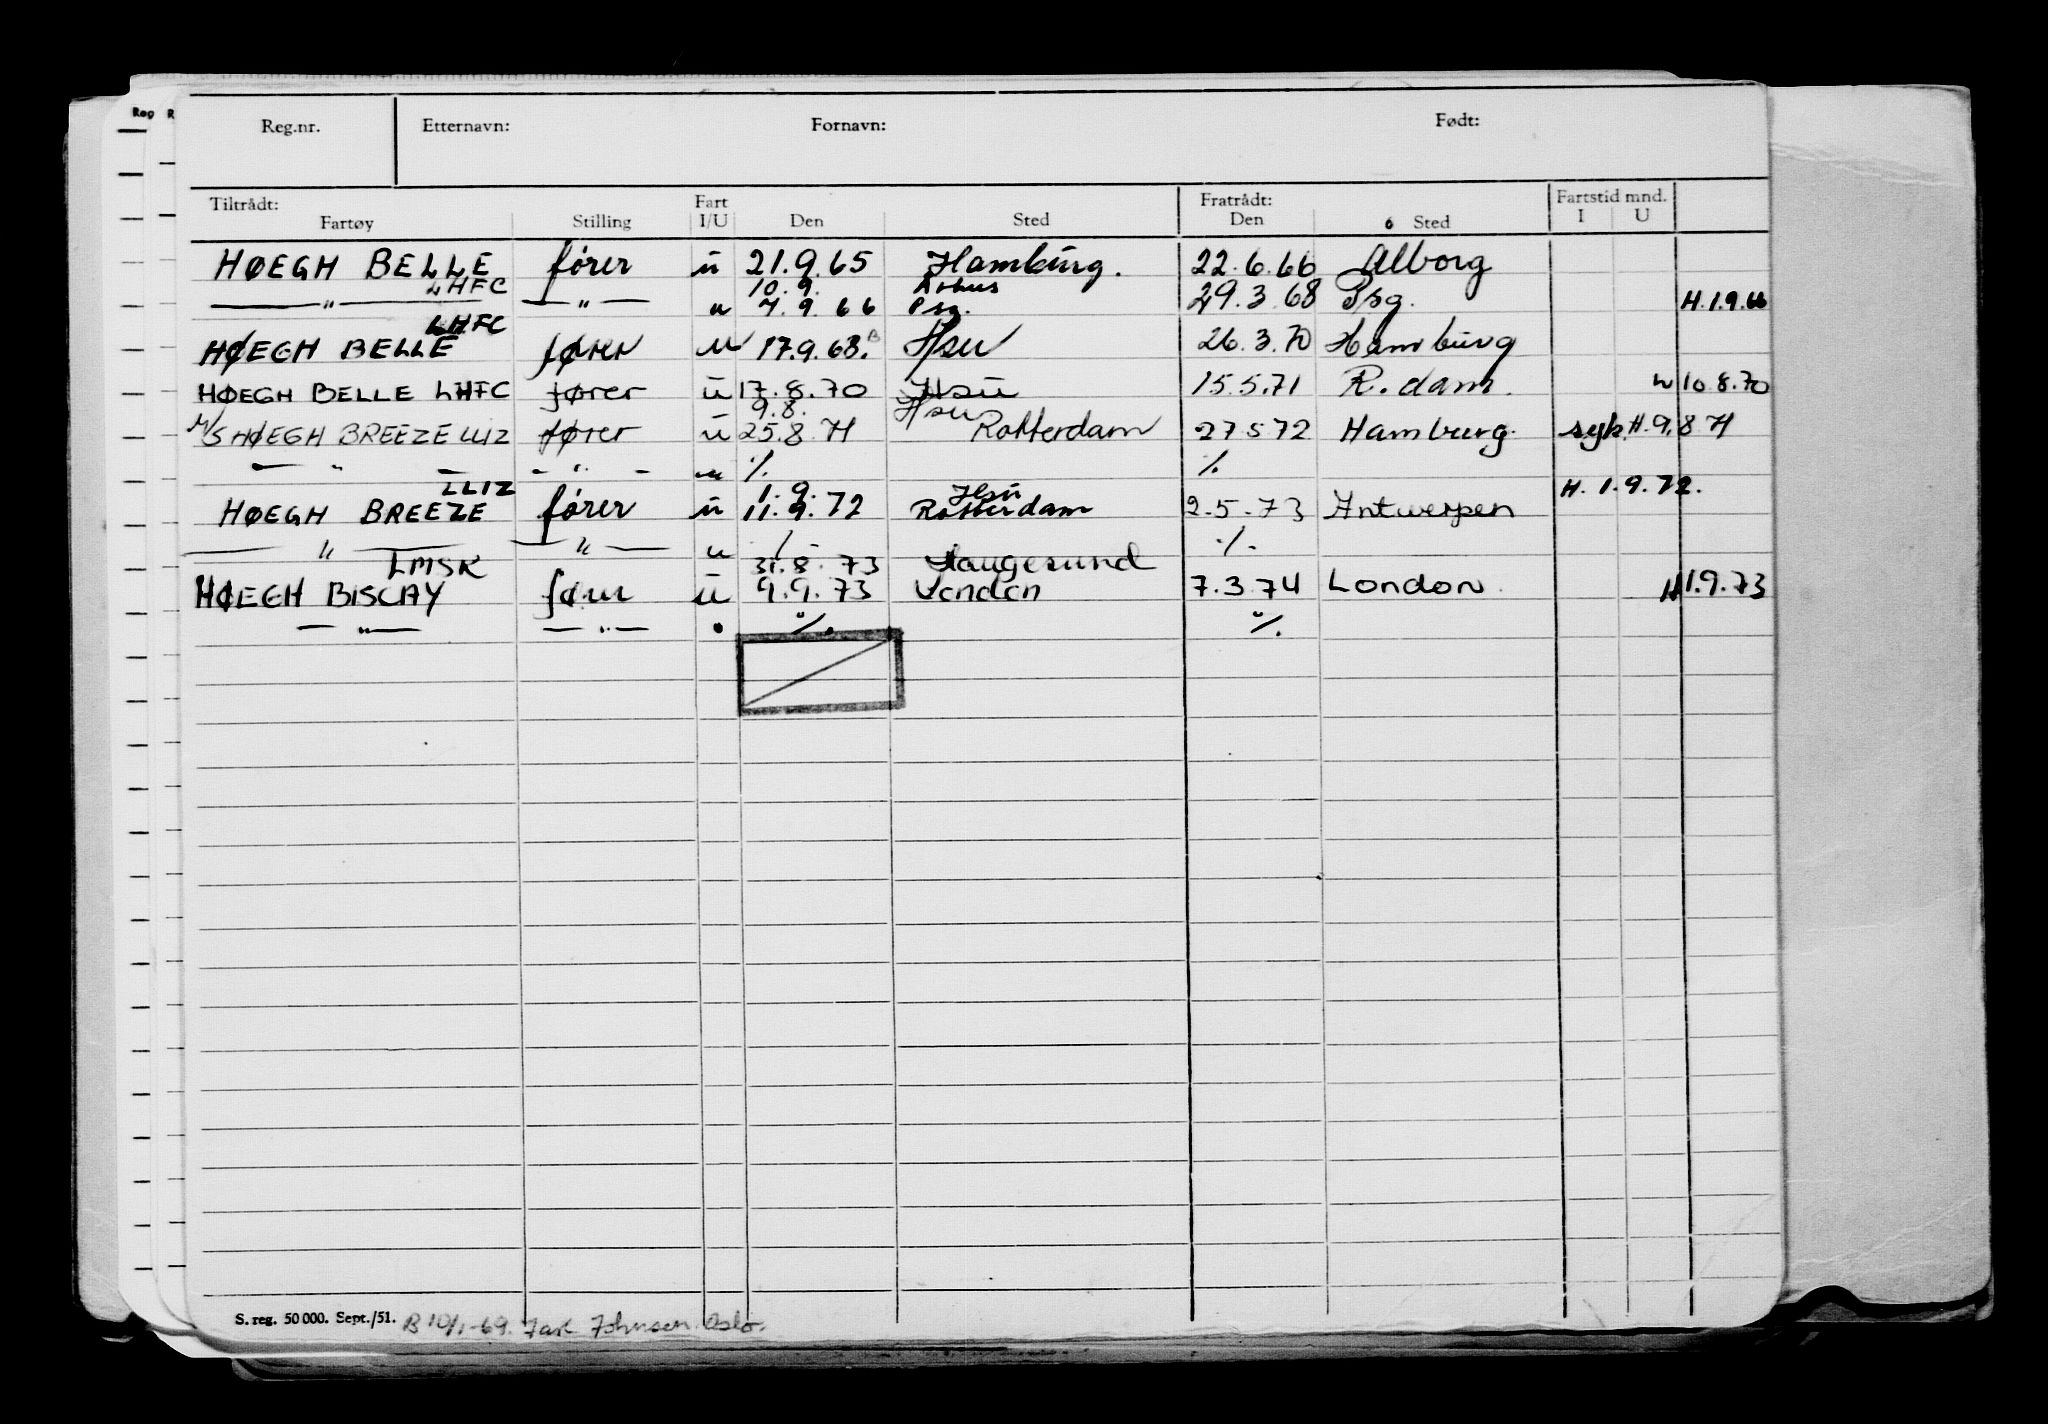 Reg R
Reg.nr. Etternavn: Fornavn: Født:
Tiltrådt: Fart Fratrådt: Fartstid mnd.
Fartøy Stilling I/U Den Sted Den 6 Sted I U
HØEGH BELLE LHFC fører u 21.9.65 Hamburg. 22.6.66 Alborg
10.9. Århus
— " — — " — u 7.9.66 Psg. 29.3.68 Psg. H.1.9.66
LHFC
HØEGH BELLE fører u 17.9.68. B Hsu 26.3.70 Hamburg
HØEGH BELLE LHFC fører u 17.8.70 Hsu 15.5.71 R.dam. 10.8.70
9.8. Hsu
M/S HØEGH BREEZE LLIZ fører u 25.8.71 Rotterdam 27.5.72 Hamburg. syk. H.9.8 71
— " — — " — u % %
LLIZ 1.9. Hsu H. 1.9.72.
HØEGH BREEZE fører u 11.9.72 Rotterdam 2.5.73 Antwerpen
— " — — " — u % %
LMSK 31.8.73 Haugesund
HØEGH BISCAY fører u 9.9.73 London 7.3.74 London H 1.9.73
— " — — " — % %
S. reg. 50 000. Sept./51. B 10/1-69. Johnsen Oslo.